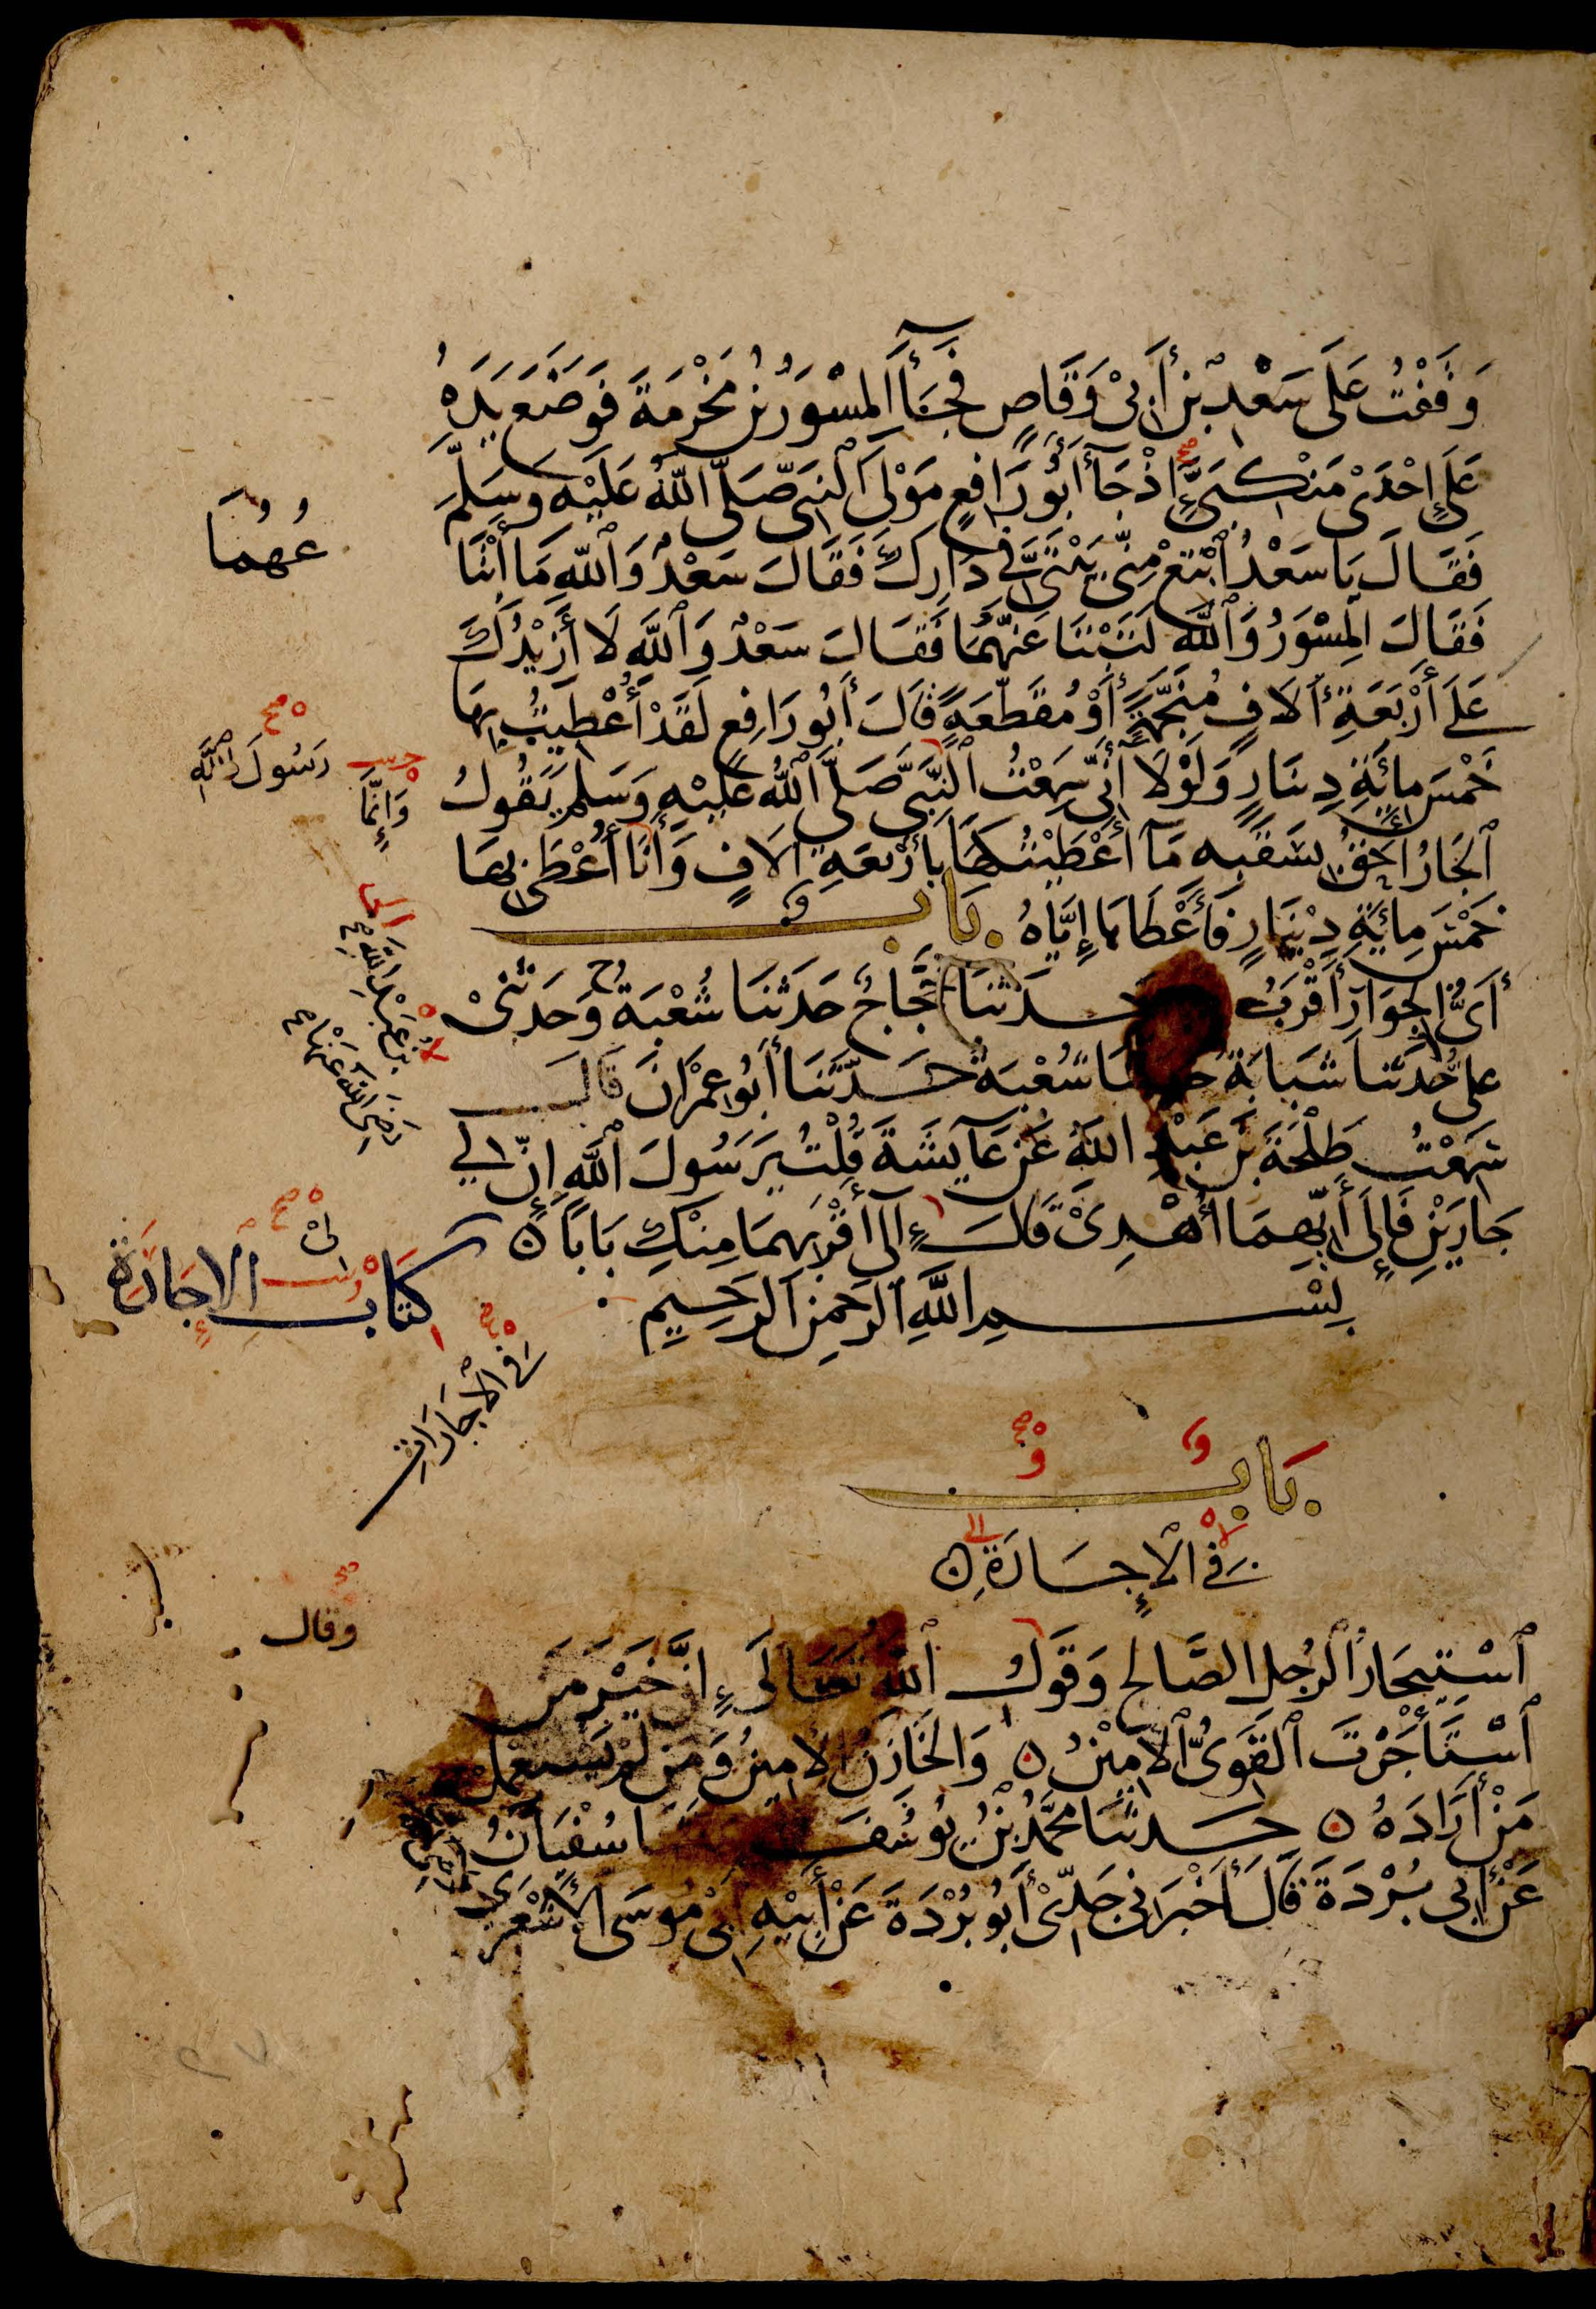 وَقَفْتُ عَلَى سَعْدِ بْنِ أَبِي وَقَّاصٍ فَجَآءَ الْمِسْوَرُ بْنُ مَخْرَمَةَ فَوَضَعَ يَدَهُ
عَلَى إِحْدَى مَنْكِبَيَّ إِذْ جَآءَ أَبُو رَافِعٍ مَوْلَى النَّبِيِّ صَلَّى اللَّهُ عَلَيْهِ وَسَلَّمَ
فَقَالَ يَا سَعْدُ ابْتَعْ مِنِّي بَيْتَيَّ فِي دَارِكَ فَقَالَ سَعْدٌ وَاللَّهِ مَا أَبْتَاعُهُمَا
فَقَالَ الْمِسْوَرُ وَاللَّهِ لَتَبْتَاعَنَّهُمَا فَقَالَ سَعْدٌ وَاللَّهِ لَا أَزِيدُكَ
عَلَى أَرْبَعَةِ آلَافٍ مُنَجَّمَةٍ أَوْ مُقَطَّعَةٍ قَالَ أَبُو رَافِعٍ لَقَدْ أُعْطِيتُ بِهَا
خَمْسَ مِائَةِ دِينَارٍ وَلَوْلَا أَنِّي سَمِعْتُ النَّبِيَّ صَلَّى اللَّهُ عَلَيْهِ وَسَلَّمَ يَقُولُ
رَسُولَ اللَّهِ
وَإِنَّمَا
الْجَارُ أَحَقُّ بِسَقَبِهِ مَا أَعْطَيْتُكَهَا بِأَرْبَعَةِ آلَافٍ وَأَنَا أُعْطَى بِهَا
خَمْسَ مِائَةِ دِينَارٍ فَأَعْطَاهَا إِيَّاهُ بَابٌ
أَيُّ الْجِوَارِ أَقْرَبُ حَدَّثَنَا حَجَّاجٌ حَدَّثَنَا شُعْبَةُ ح وَحَدَّثَنِي
عَلِيٌّ حَدَّثَنَا شَبَابَةُ حدثنا شُعْبَةُ حَدَّثَنَا أَبُو عِمْرَانَ قَالَ
بْنُ عَبْدِ اللَّهِ
رَضِيَ اللَّهُ عَنْهَا
سَمِعْتُ طَلْحَةَ بْنَ عَبْدِ اللَّهِ عَنْ عَائِشَةَ قُلْتُ يَرَسُولَ اللَّهِ إِنَّ لِي
جَارَيْنِ فَإِلَى أَيِّهِمَا أُهْدِي قَالَ إِلَى أَقْرَبِهِمَا مِنْكِ بَابًا
بِسْمِ اللَّهِ الرَّحْمَنِ الرَّحِيمِ
كِتَابُ الْإِجَارَةِ
فِي الْإِجَارَاتِ
بَابٌ
فِي الْإِجَارَةِ
وقال
اسْتِيجَارِ الرَّجُلِ الصَّالِحِ وَقَوْلِ اللَّهِ تَعَالَى إِنَّ خَيْرَ مَنِ
اسْتَأْجَرْتَ الْقَوِيُّ الْأَمِينُ وَالْخَازِنُ الْأَمِينُ وَمَنْ لَمْ يَسْتَعْمِلْ
مَنْ أَرَادَهُ حَدَّثَنَا مُحَمَّدُ بْنُ يُوسُفَ سُفْيَانُ
عَنْ أَبِي بُرْدَةَ قَالَ أَخْبَرَنِي جَدِّي أَبُو بُرْدَةَ عَنْ أَبِيهِ أَبِي مُوسَى الْأَشْعَرِيِّ